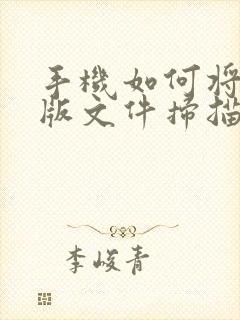 手機如何將
版文件掃描
李峻青